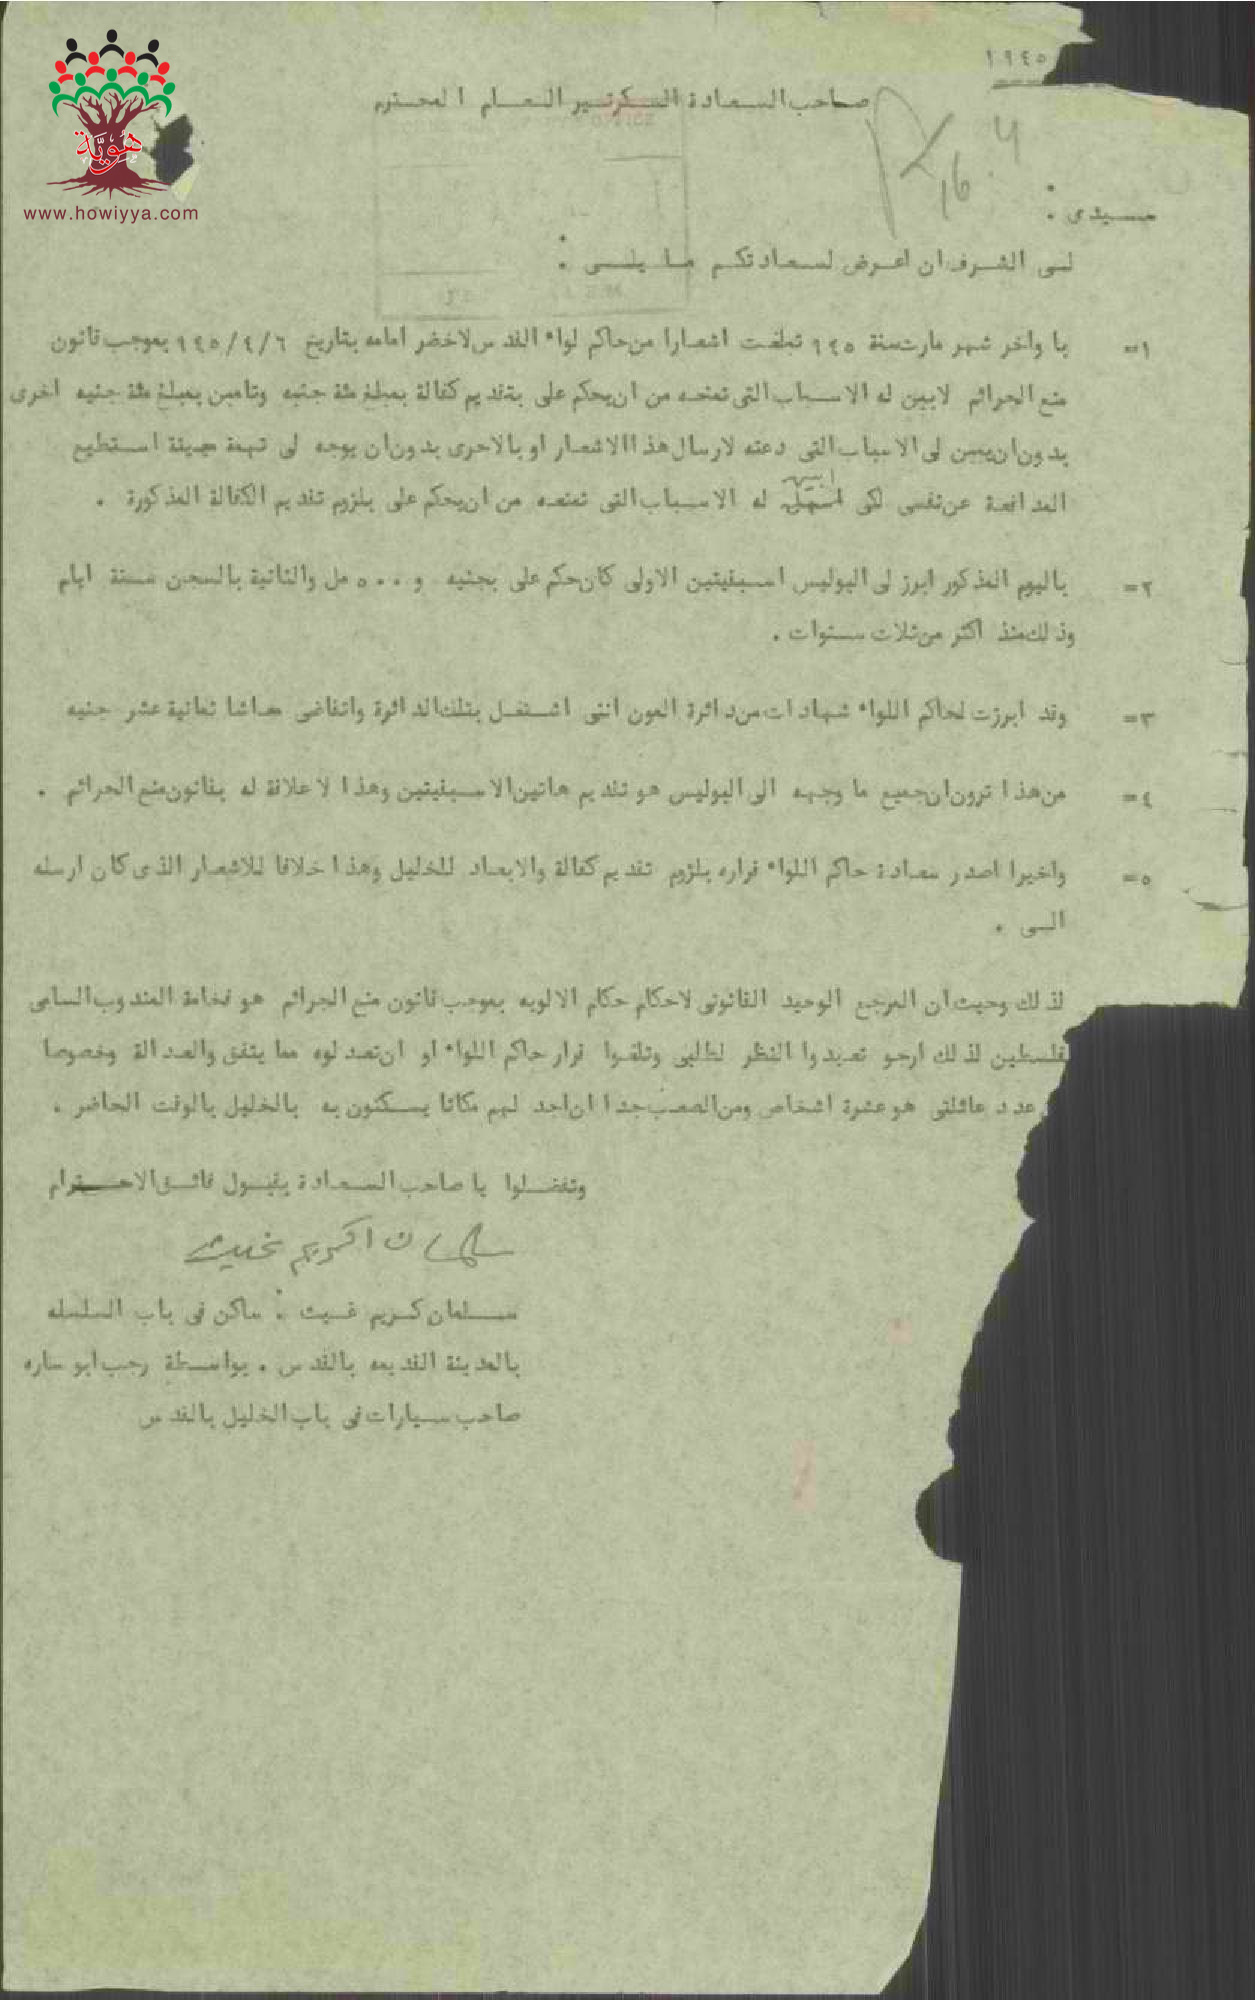 هوية
www.howiyya.com
١٩٤٥
صاحب السعادة السكرتير العام المحترم
OFFICE
16.4
سيدى :
لى الشرف ان اعرض لسعادتكم ما يلى :
١= با واخر شهر مارت سنة ٩٤٥ تبلغت اشعارا من حاكم لواء القدس لاحضر امامه بتاريخ ٩٤٥/٤/٦ بموجب قانون
منع الجرائم لابين له الاسباب التى تمنعه من ان يحكم على بتقديم كفالة بمبلغ مئة جنيه وتامين بمبلغ مئة جنيه اخرى
بدون ان يبين لى الاسباب التى دعته لارسال هذا الاشعار او بالاحرى بدون ان يوجه لى تهمة معينة استطيع
المدافعة عن نفسى لكى ابين له الاسباب التى تمنعه من ان يحكم على بلزوم تقديم الكفالة المذكورة .
٢= باليوم المذكور ابرز لى البوليس اسبقيتين الاولى كان حكم على بجنيه و ٥٠٠ مل والثانية بالسجن ستة ايام
وذلك منذ اكثر من ثلاث سنوات .
٣= وقد ابرزت لحاكم اللواء شهادات من دائرة العون اننى اشتغل بتلك الدائرة واتقاضى معاشا ثمانية عشر جنيه
٤= من هذا ترون ان جميع ما وجهه الى البوليس هو تقديم هاتين الاسبقيتين وهذا لا علاقة له بقانون منع الجرائم .
٥= واخيرا اصدر سعادة حاكم اللواء قراره بلزوم تقديم كفالة والابعاد للخليل وهذا خلافا للاشعار الذى كان ارسله
الى .
لذلك وحيث ان المرجع الوحيد القانونى لاحكام حكام الالويه بموجب قانون منع الجرائم هو فخامة المندوب السامى
لفلسطين لذلك ارجو تعيدوا النظر لطلبى وتلغوا قرار حاكم اللواء او ان تعدلوه مما يتفق والعدالة وخصوصا
عدد عائلتى هو عشرة اشخاص ومن الصعب جدا ان اجد لهم مكانا يسكنون به بالخليل بالوقت الحاضر .
وتفضلوا يا صاحب السعادة بقبول فائق الاحترام
سلمان اكريم غيث
سلمان كريم غيث : ساكن فى باب السلسله
بالمدينة القديمه بالقدس . بواسطة رجب ابو ساره
صاحب سيارات فى باب الخليل بالقدس